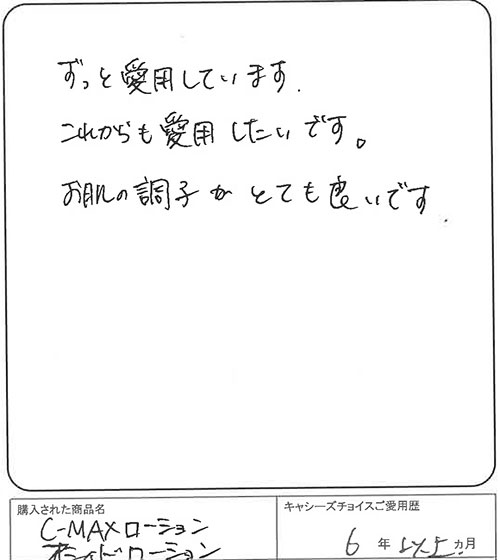 ずっと愛用しています.
これからも愛用したいです。
お肌の調子がとても良いです.
購入された商品名
C-MAXローション
ローション
キャシーズチョイスご愛用歴
6年以上ヵ月